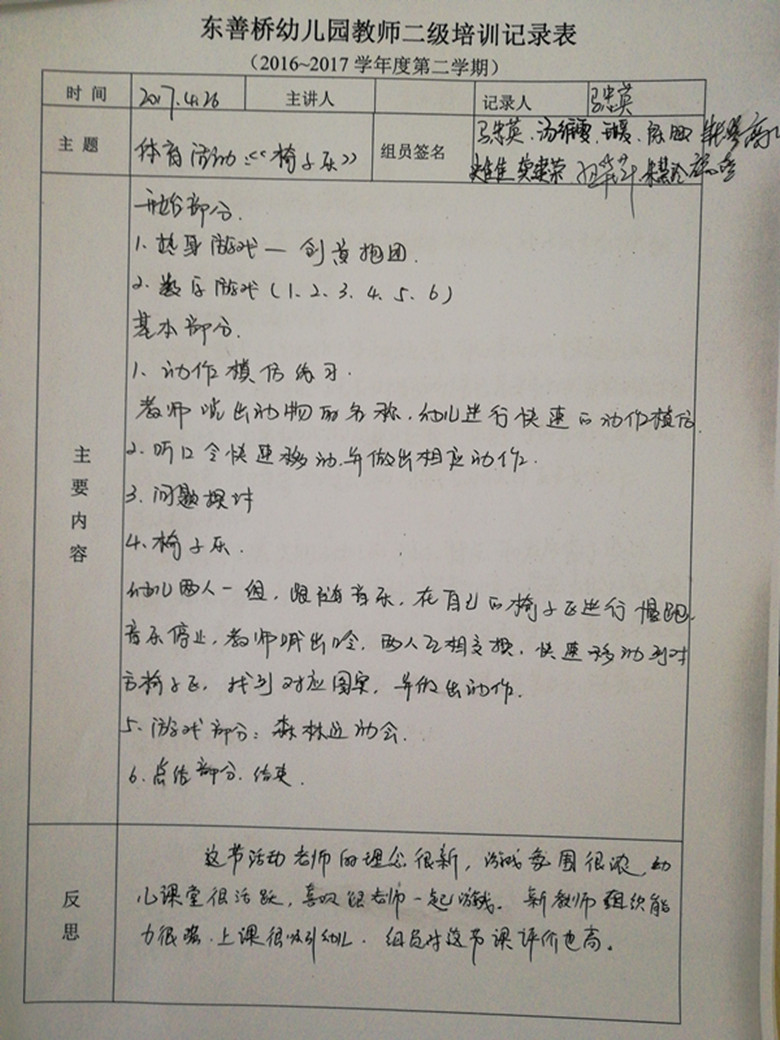 东善桥幼儿园教师二级培训记录表
（2016~2017 学年度第二学期）
时 间 2017.4.26 主讲人 记录人
主 题 体育活动：《椅子乐》 组员签名
主要内容
开始部分.
1. 热身游戏—
2. 数字游戏（1、2、3、4、5、6）
基本部分.
1、动作模仿练习.
教师喊出动物的名称，幼儿进行快速的动作模仿.
2. 听口令快速移动.并做出相应动作.
3. 问题探讨
4. 椅子乐.
幼儿两人一组，跟随音乐，在自己的椅子区进行慢跑.
音乐停止，教师喊出口令，两人互相交换，快速移动到对
方椅子区，找到对应图案，并做出动作.
5. 游戏部分：森林运动会.
6. 总结部分. 结束.
反思
这节活动老师的理念很新，游戏氛围很浓，幼
儿课堂很活跃，喜欢跟老师一起游戏。新教师组织能
力很强.上课很吸引幼儿. 组员对这节课评价也高。